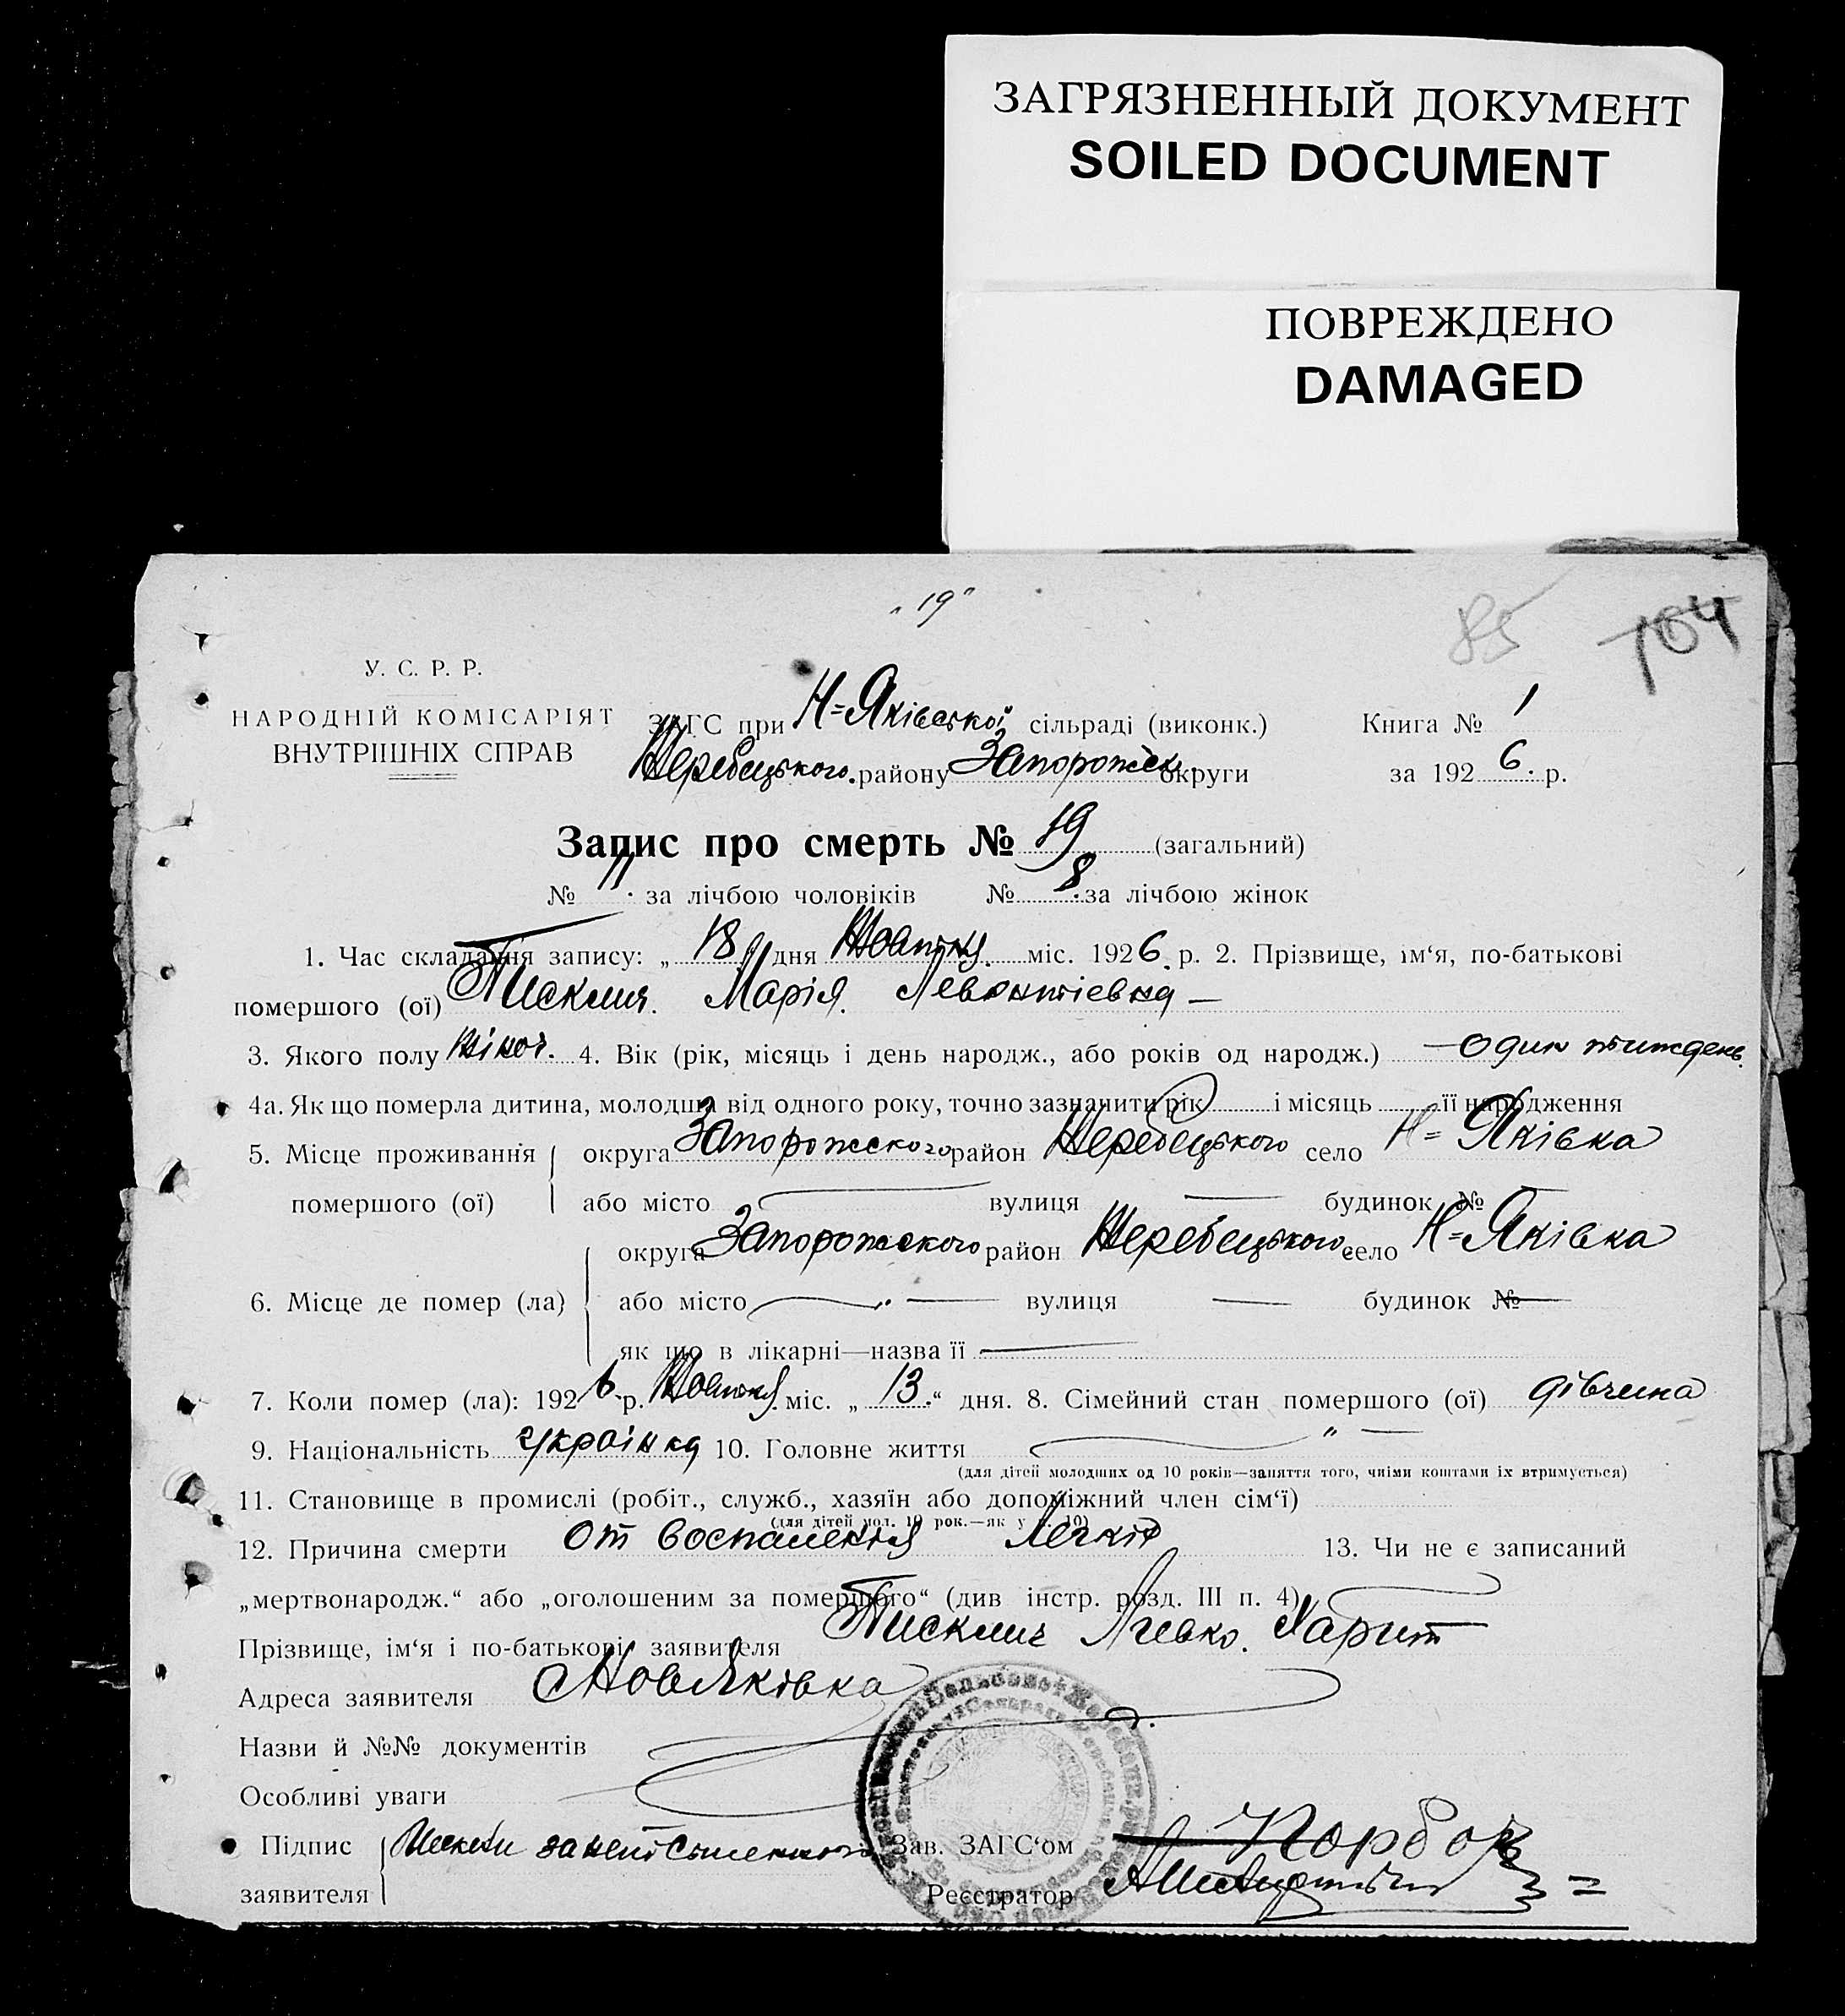 ЗАГРЯЗНЕННЫЙ ДОКУМЕНТ
SOILED DOCUMENT
ПОВРЕЖДЕНО
DAMAGED
„19"
85 104
У. С. Р. Р.
НАРОДНІЙ КОМІСАРІЯТ
ВНУТРІШНІХ СПРАВ
ЗАГС при Н=Яківської сільраді (виконк.) Книга № 1
Жеребецького району Запорожск. округи за 1926. р.
Запис про смерть № 19 (загальний)
№ 11. за лічбою чоловіків № 8. за лічбою жінок
1. Час складання запису: „18" дня Жовтня міс. 1926. р. 2. Прізвище, ім‘я, по-батькові
помершого (ої) Пискляч. Марія. Левонтіевна —
3. Якого полу жіноч. 4. Вік (рік, місяць і день народж., або років од народж.) — один тиждень.
4а. Як що померла дитина, молодша від одного року, точно зазначити рік і місяць її народження
5. Місце проживання округа Запорожского район Жеребецького село Н=Яківка
помершого (ої) або місто — вулиця — будинок № —
округа Запорожского район Жеребецького село Н=Яківка
6. Місце де помер (ла) або місто — „ — вулиця — будинок № —
як що в лікарні—назва її —
7. Коли помер (ла): 1926 р. Жовтня міс. „13." дня. 8. Сімейний стан помершого (ої) дівчина
9. Національність українка 10. Головне життя — „ —
(для дітей молодших од 10 років—заняття того, чиїми коштами їх втримується)
11. Становище в промислі (робіт., служб., хазяїн або допоміжний член сім‘ї)
(для дітей мол. 10 рок.—як у п. 10)
12. Причина смерти От воспаления Легкіх 13. Чи не є записаний
„мертвонародж.“ або „оголошеним за помершого“ (див інстр. розд. III п. 4)
Прізвище, ім‘я і по-батькові заявителя Пискляч Левко. Харит
Адреса заявителя НовЯківка
Назви й №№ документів
Особливі уваги
Підпис Зав. ЗАГС‘ом
заявителя Реєстратор